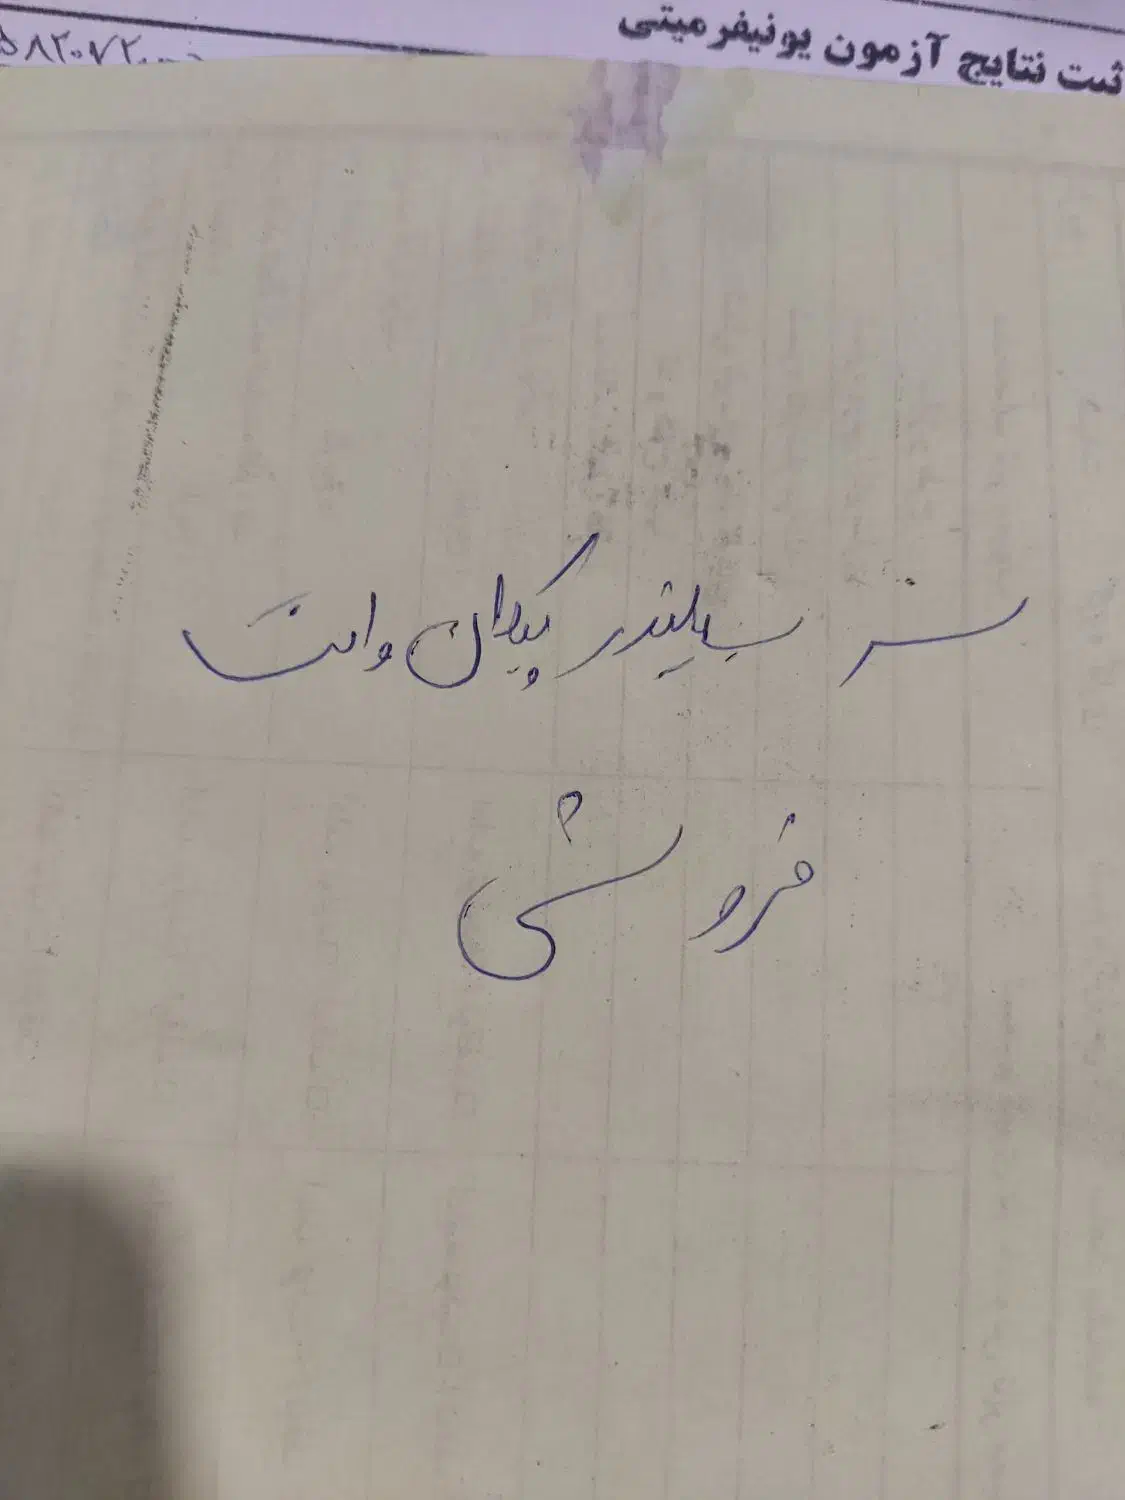 ثبت نتایج آزمون یونیفرمیتی
سر سیلندر پیکان وانت
فروشی